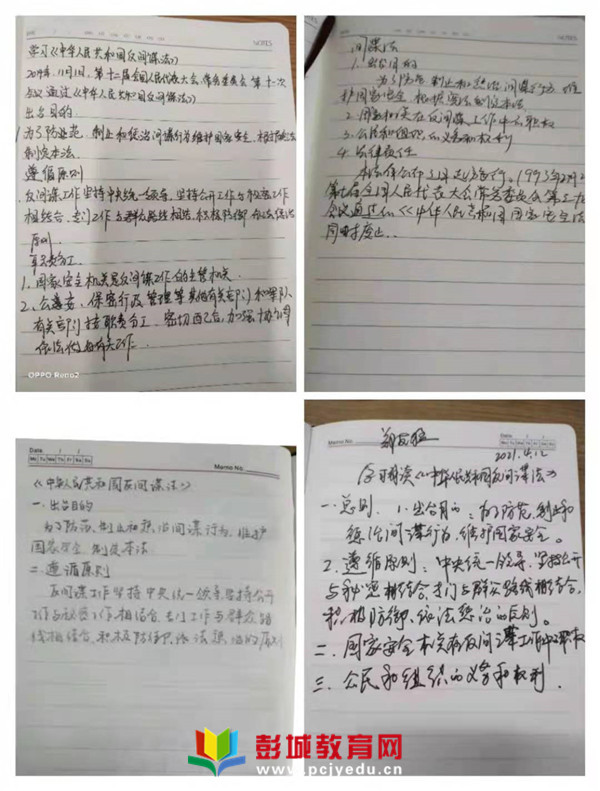 NOTES
学习《中华人民共和国反间谍法》
2014年11月1日,第十二届全国人民代表大会常务委员会第十一次
会议通过《中华人民共和国反间谍法》
出台目的
为了防范、制止和惩治间谍行为维护国家安全,根据宪法
制定本法.
遵循原则
反间谍工作坚持中央统一领导,坚持公开工作与秘密工作
相结合,专门工作与群众路线相结合,积极防御,依法惩治
原则.
职责分工.
1、国家安全机关是反间谍工作的主管机关.
2、公安、保密行政管理等其他有关部门和军队
有关部门按职责分工,密切配合,加强协调
依法做好有关工作.
OPPO Reno2
NOTES
间谍法
1.出台目的
为了防范制止和惩治间谍行为,维
护国家安全,根据宪法制定本法
2.国家机关在反间谍工作中的职权
3.公民和组织的义务和权利
4.法律责任
本法自公布之日起施行.1993年2月2
第七届全国人民代表大会常务委员会第三十
会议通过的《中华人民共和国国家安全法
同时废止.
Date / /
Mo Tu We Th Fr Sa Su
Memo No.
《中华人民共和国反间谍法》
一.出台目的
为了防范、制止和惩治间谍行为,维护
国家安全,制定本法
二.遵循原则
反间谍工作坚持中央统一领导,坚持公开
工作与秘密工作相结合、专门工作与群众路
线相结合、积极防御、依法惩治的原则
Memo No.
Mo Tu We Th Fr Sa Su
Date / /
2021.4.12
学习解读《中华人民共和国反间谍法》
一.总则. 1.出台目的:为了防范,制止和
惩治间谍行为,维护国家安全。
2.遵循原则:中央统一领导,坚持公开
与秘密相结合,专门与群众路线相结合,
积极防御,依法惩治的原则。
二.国家安全机关在反间谍工作中职权
三.公民和组织的义务和权利.
彭城教育网
www.pcjyedu.cn